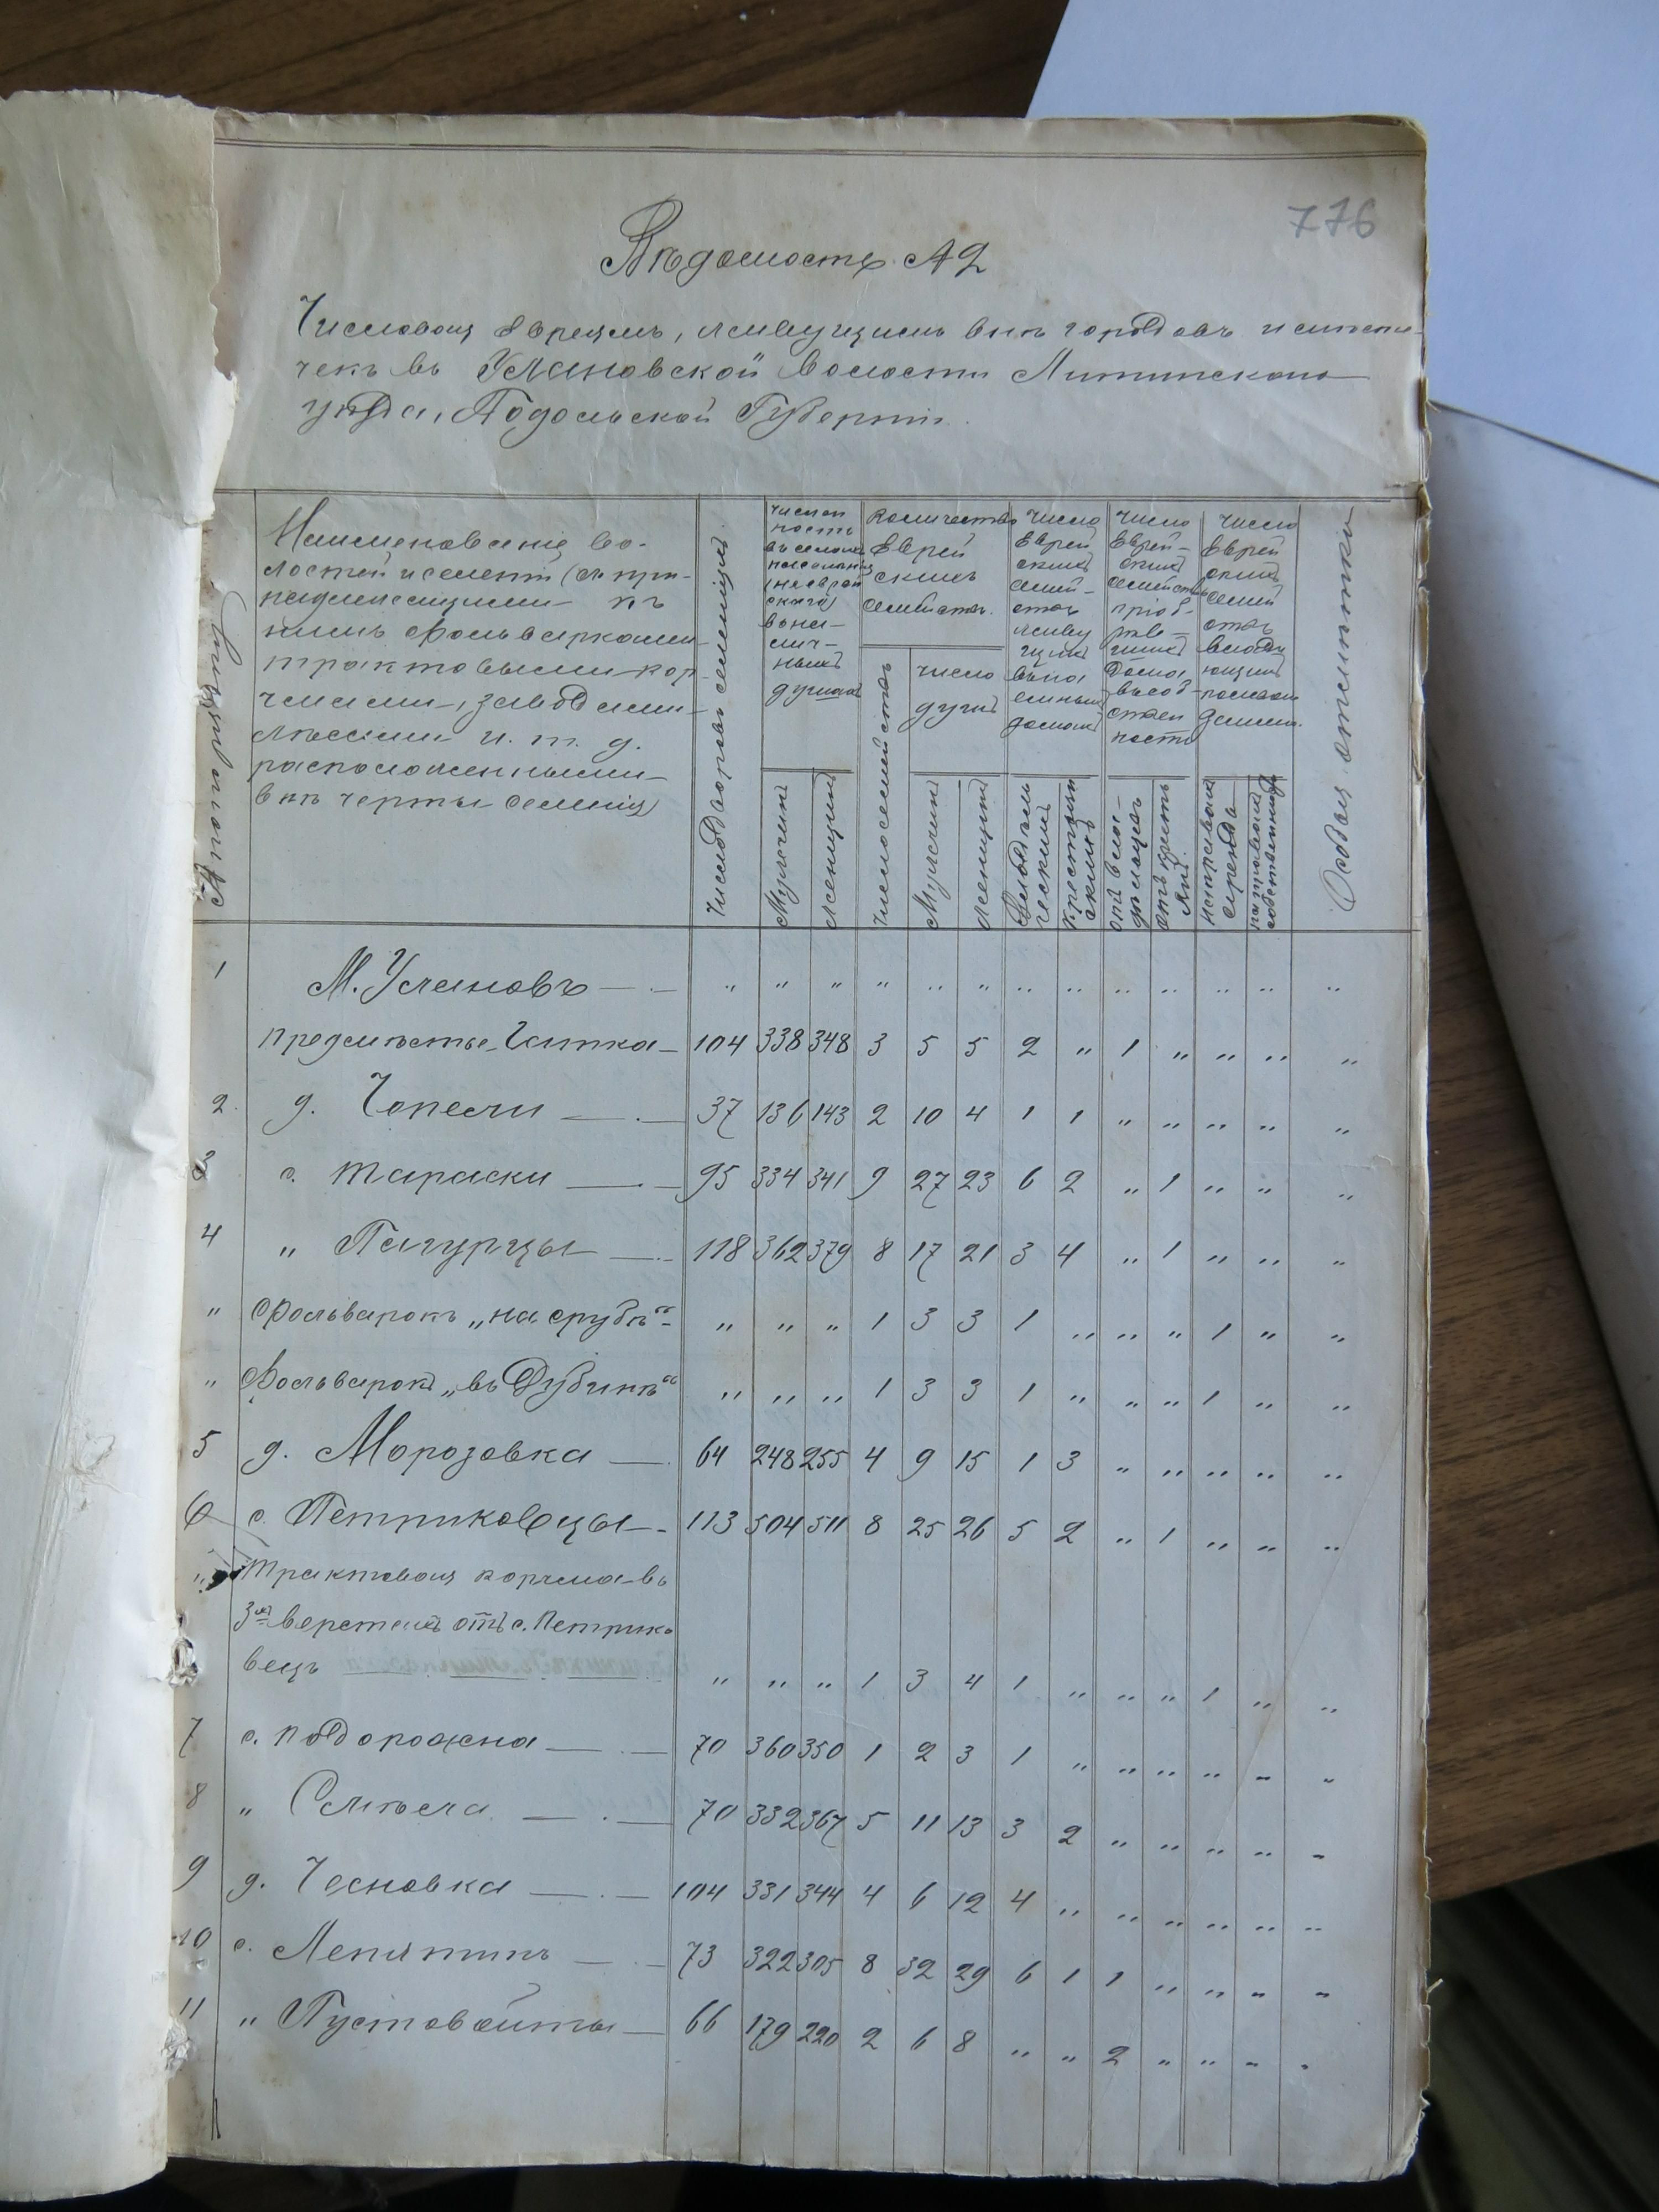 776
Вѣдомость А 2
Числовая Евреямъ, живущимъ внѣ городовъ и мѣсте-
чекъ въ Улановской волости Литинскаго
уѣзда, Подольской Губерніи.
№ по порядку
Наименованіе во-
лостей и селеній (съ при-
надлежащими къ
нимъ фольварками
трактовыми кор-
чмами, заводами
лѣсами и. т. д.
расположенными
внѣ черты селенія)
Число дворовъ въ селеніяхъ
Числен
ность
въ селеніи
населенія
(не еврей
скаго)
въ на-
лич-
ныхъ
душахъ
Мужчинъ
женщинъ
Количество
Еврей
скихъ
семействъ.
Число семействъ
число
душъ
Мужчинъ
женщинъ
Число
Еврей
скихъ
семей-
ствъ
живу
щихъ
въ на
емныхъ
домахъ
Владѣль
ческихъ
крестьян
скихъ
Число
Еврей-
скихъ
семействъ
пріоб-
рѣв-
шихъ
дома
въ соб-
ствен
ность
отъ вла-
дѣльцевъ
отъ кресть
янъ
Число
Еврей
скихъ
семей
ствъ
владѣ
ющихъ
землями.
на правахъ
аренды
на правахъ
собственности
Особыя отмѣтки
1 М. Улановъ — . — " " " " " " " " " " " " "
предмѣстье Читка — 104 338 348 3 5 5 2 " 1 " " " "
2. д. Чепели — . — 37 136 143 2 10 4 1 1 " " " " "
3 с. Тараски — . — 95 334 341 9 27 23 6 2 " 1 " " "
4 " Пагурцы — . 118 362 379 8 17 21 3 4 " 1 " " "
" Фольварокъ „на срубѣ“ - " " " 1 3 3 1 " " " 1 " "
" Фольварокъ „въ Дубинѣ“ " " " 1 3 3 1 " " " 1 " "
5 д. Морозовка — . 64 248 255 4 9 15 1 3 " " " " "
6 с. Петриковцы — . 113 504 511 8 25 26 5 2 " 1 " " "
" Трактовая корчма въ
3хъ верстахъ отъ с. Петрико
вецъ " " " 1 3 4 1 " " " 1 " "
7 с. Подорожна — . — 70 360 350 1 2 3 1 " " " " " "
8 " Семпела — . — 70 332 367 5 11 13 3 2 " " " " "
9 д. Чесновка — . — 104 331 344 4 6 12 4 " " " " " "
10 с. Лепятинъ — . — 73 322 305 8 32 29 6 1 1 " " " "
11 " Пустовойты — 66 179 220 2 6 8 " " 2 " " " "